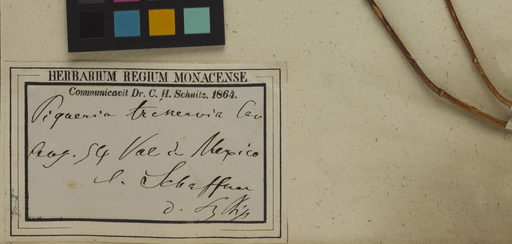 HERBARIUM REGIUM MONACENSE.
Communicavit Dr. C. H. Schultz. 1864.
Piqueria trinervia Cav
Aug. 54 Val de Mexico
l. Schaffner
d.